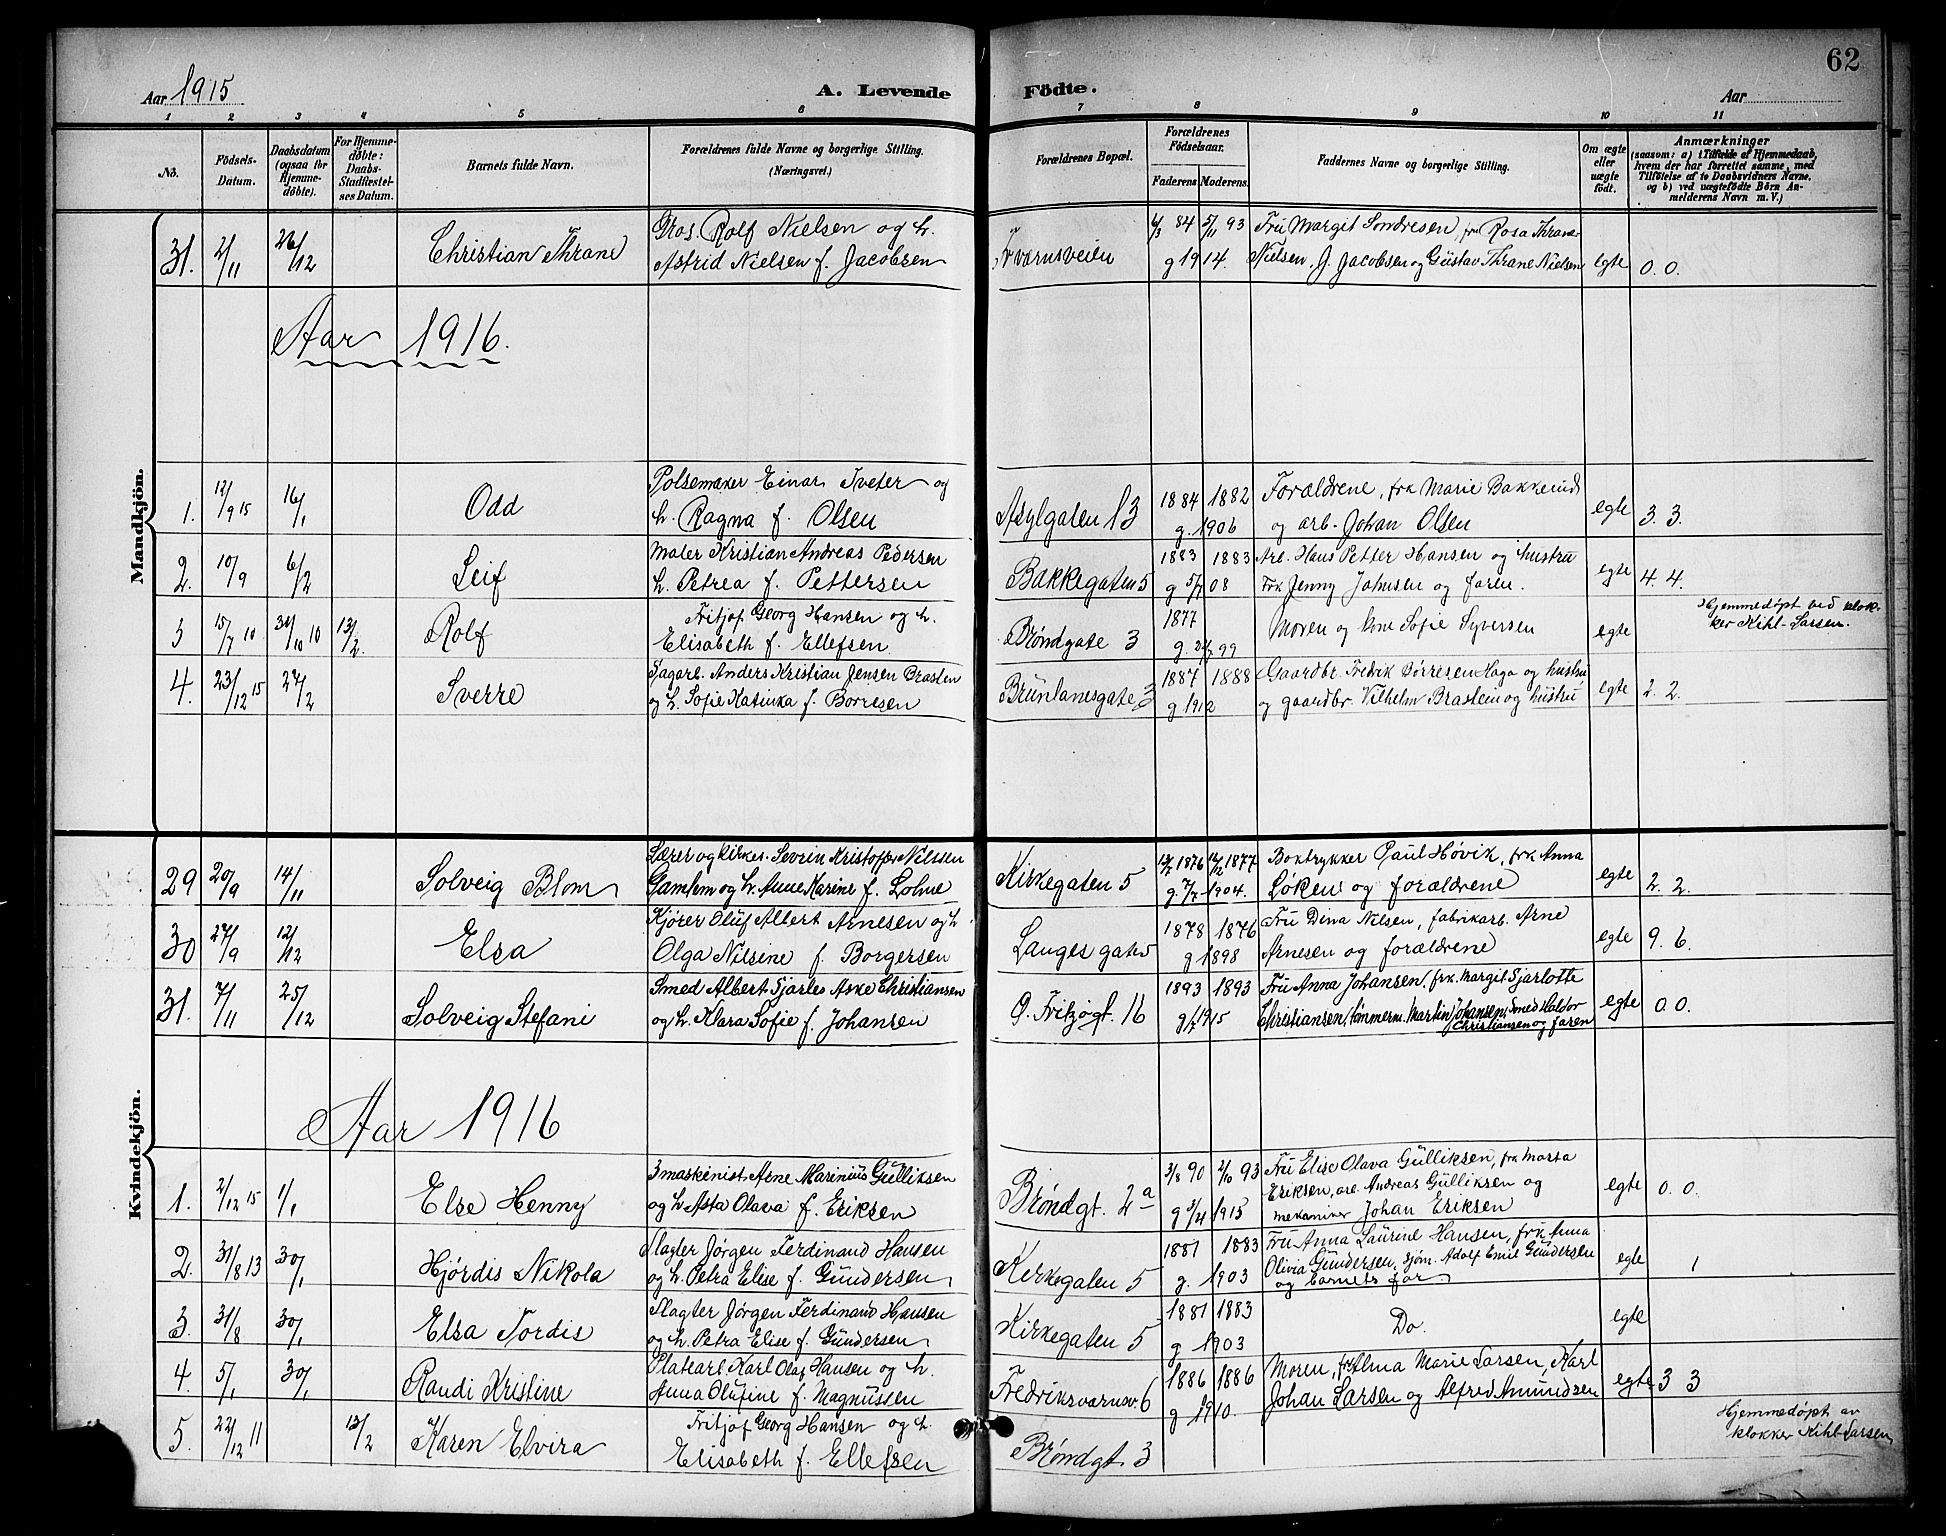 62
Aar 1915
A. Levende
Födte.
Aar
1 2 3 4 5 6 7 8 9 10 11
No.
Födsels-
Datum.
Daabsdatum
(ogsaa for
Hjemme-
döbte).
For Hjemme-
döbte:
Daabs-
Stadfæstel-
ses Datum.
Barnets fulde Navn.
Forældrenes fulde Navne og borgerlige Stilling.
(Næringsvei.)
Forældrenes Bopæl.
Forældrenes
Födselsaar.
Faderens.
Moderens.
Faddernes Navne og borgerlige Stilling.
Om ægte
eller
uægte
födt.
Anmærkninger
(saasom: a) i Tilfælde af Hjemmedaab,
hvem der har forrettet samme, med
Tilföielse af to Daabsvidners Navne,
og b) ved uægtefödte Börn An-
melderens Navn m. V.)
Mandkjön.
31. 2/11 26/12 Christian Thrane
Gros. Rolf Nielsen og h.
Astrid Nielsen f. Jacobsen
6/3 84 5/11 93
g 1914.
Fru Margit Sondresen, fru Rosa Thrane
Nielsen, J. Jacobsen og Gustav Thrane Nielsen
egte 0. 0.
Aar 1916.
1. 12/9 15 16/1 Odd
Pølsemaker Einar Tveter og
h. Ragna f. Olsen
Asylgaten 13
1884 1882
g. 1906
Forældrene, frk Marie Bakkerud
og arb. Johan Olsen
egte 3. 3.
2. 10/9 6/2 Leif
Maler Kristian Andreas Pedersen
h. Petrea f. Pettersen
Bakkegaten 5
1883 1883
g 5/7 08
Arb. Hans Petter Hansen og hustru
Frk Jenny Johnsen og faren.
egte 4. 4.
3 15/7 10 31/10 10 13/2 Rolf
Fritjof Georg Hansen og h.
Elisabeth f. Ellefsen
Brøndgate 3
1877
g. 99
Moren og kone Sofie Syversen
egte
Hjemmedøpt ved klok-
ker Kihl-Larsen.
4. 23/12 15 27/2 Sverre
Sagarb. Anders Kristian Jensen Brasten
og h. Sofie Katinka f. Borresen
Brunlanesgate 3
1887 1888
g 1912
Gaardbr. Fredrik Børresen Haga og hustru
og gaardbr. Vilhelm Brastein og hustru
egte 2. 2.
Kvindekjön.
29 20/9 14/11 Solveig Blom
Lærer og kirkes. Sevrin Kristoffer Nilssen
Gamlem og h. Anne Karine f. Lohne
Kirkegaten 5
1876 1877
g. 7/7 1904.
Boktrykker Paul Høvik, frk Anna
Løken og forældrene
egte 2. 2.
30 27/9 12/12 Elsa
Kjører Oluf Albert Arnesen og h.
Olga Nilsine f. Borgersen
Langes gate 5
1878 1876
g 1898
Fru Dina Nilsen, fabrikarb. Arne
Arnesen og forældrene
egte 9. 6.
31. 7/11 25/12 Solveig Stefani
Smed Albert Sjarles Aske Christiansen
og h. Klara Sofie f. Johansen
Ø. Fritzøgt. 16
1893 1893
g 1915
Fru Anna Johansen, frk. Margit Sjarlotte
Christiansen, tømmerm. Martin Johansen, Smed Haldor
Christiansen og faren
egte 0. 0.
Aar 1916
1. 2/12 15 1/1 Else Henny
3 maskinist Arne Marinius Gulliksen
og h. Asta Olava f. Eriksen
Brøndgt. 2a
3/8 90 2/10 93
g 5/4 1915
Fru Elise Olava Gulliksen, frk Marta
Eriksen, arb. Andreas Gulliksen og
mekaniker Johan Eriksen
egte 0. 0.
2. 31/8 13 30/1 Hjørdis Nikola
Slagter Jørgen Ferdinand Hansen
og h. Petra Elise f. Gundersen
Kirkegaten 5
1881 1883
g. 1903
Fru Anna Laurine Hansen, frk Anna
Olivia Gundersen, sjøm. Adolf Emil Gundersen
og barnets far
egte 1
3. 31/8 30/1 Elsa Tordis
Slagter Jørgen Ferdinand Hansen
og h. Petra Elise f. Gundersen
Kirkegaten 5
1881 1883
g 1903
Do.
egte
4. 5/1 30/1 Randi Kristine
Platearb. Karl Olaf Hansen og h.
Anna Olufine f. Magnussen
Fredriksvernsv. 6
1886 1886
g 1910.
Moren, frk Alma Marie Larsen, Karl
Johan Larsen og Alfred Amundsen
egte 3 3
5. 22/12 11 13/2 Karen Elvira
Fritjof Georg Hansen og h.
Elisabeth f. Ellefsen
Brøndgt 3
Hjemmedøpt av
klokker Kihl-Larsen